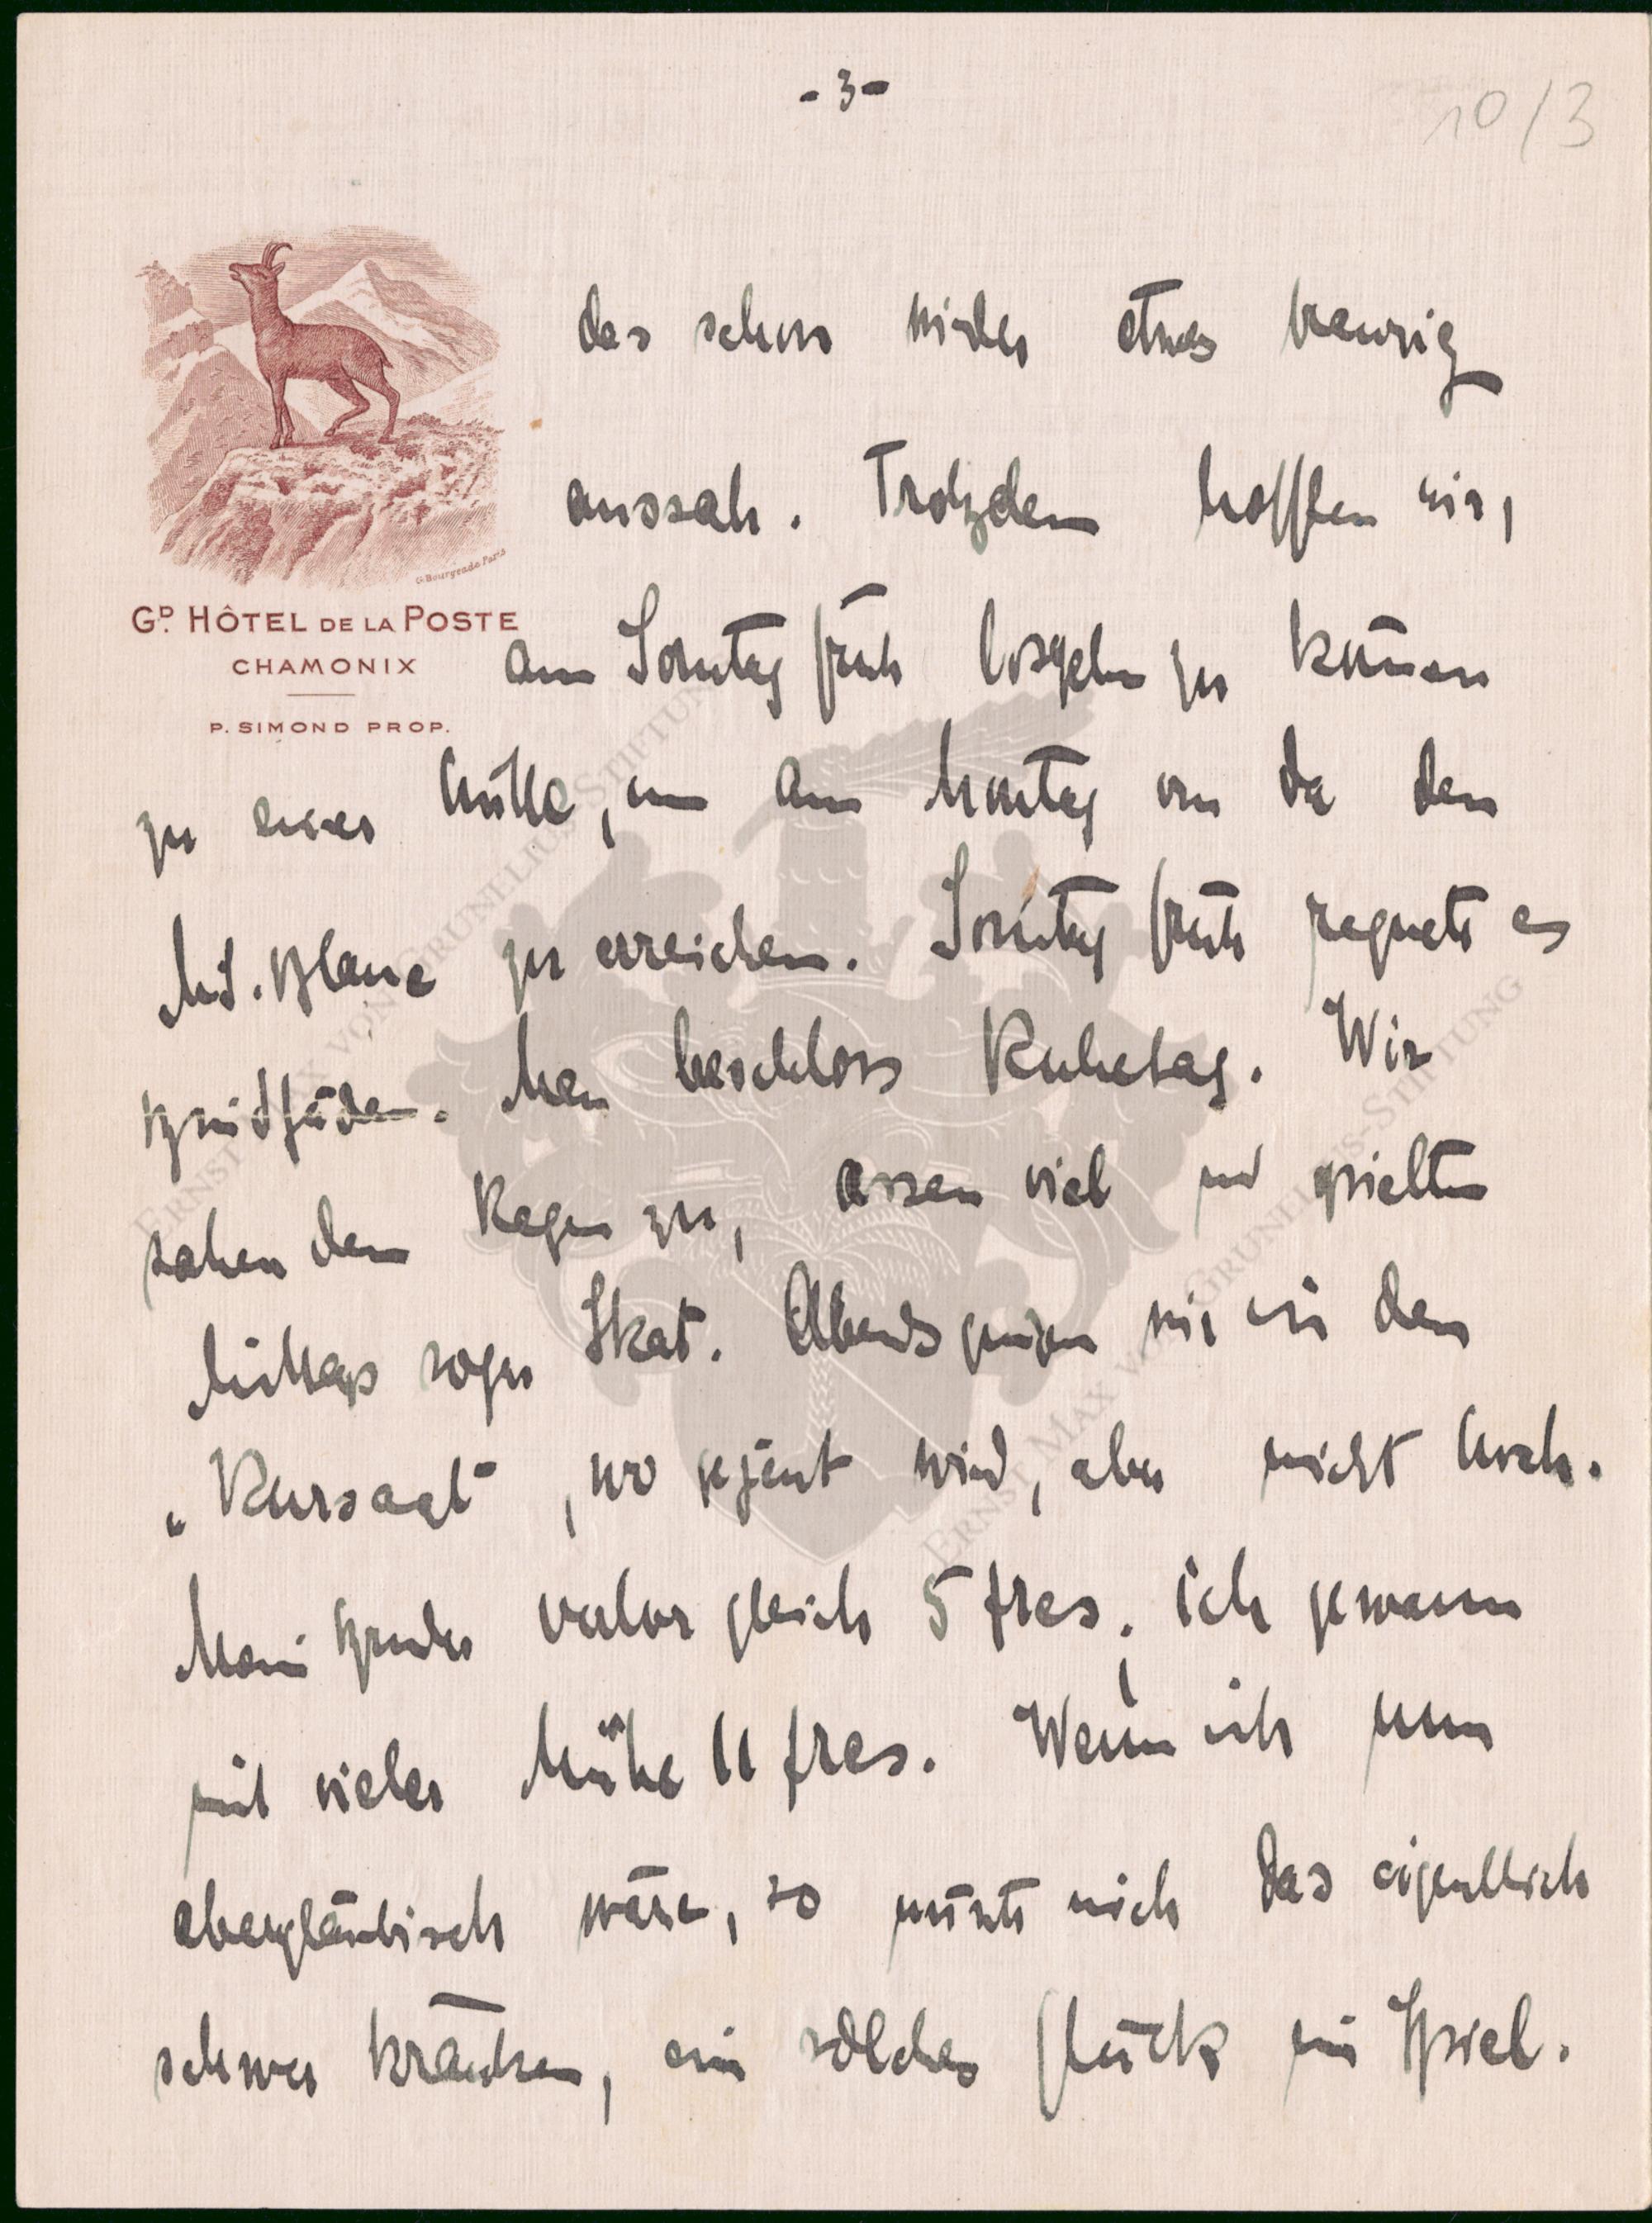 - 3 -
10/3
G. Bourgeade Paris
GD. HÔTEL DE LA POSTE
CHAMONIX
P. SIMOND PROP.
das schon wieder etwas traurig
aussah. Trotzdem hofften wir,
am Sonntag früh losgehn zu können
zu einer Hütte, um am Montag von da den
Mt. Blanc zu erreichen. Sonntag früh regnete es
Bindfäden. Man beschloss Ruhetag. Wir
sahen dem Regen zu, assen viel und spielten
mittags sogar Skat. Abends gingen wir in den
„Kursaal", wo gejeut wird, aber nicht hoch.
Mein Bruder verlor gleich 5 frcs, ich gewann
mit vieler Mühe 11 frcs. Wenn ich nun
abergläubisch wäre, so müsste mich das eigentlich
schwer kränken, ein solches Glück im Spiel.
ERNST MAX VON GRUNELIUS-STIFTUNG
ERNST MAX VON GRUNELIUS-STIFTUNG